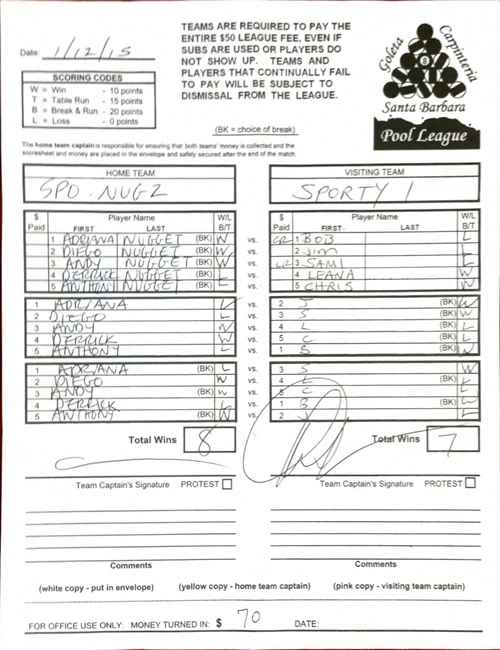 TEAMS ARE REQUIRED TO PAY THE
ENTIRE $50 LEAGUE FEE, EVEN IF
SUBS ARE USED OR PLAYERS DO
NOT SHOW UP. TEAMS AND
PLAYERS THAT CONTINUALLY FAIL
TO PAY WILL BE SUBJECT TO
DISMISSAL FROM THE LEAGUE.
(BK = choice of break)
Date: 1/12/15
SCORING CODES
W = Win - 10 points
T = Table Run - 15 points
B = Break & Run - 20 points
L = Loss - 0 points
Goleta
Carpinteria
8
Santa Barbara
Pool League
The home team captain is responsible for ensuring that both teams' money is collected and the
scoresheet and money are placed in the envelope and safely secured after the end of the match.
HOME TEAM VISITING TEAM
SPO. NUGZ SPORTY 1
$ Paid Player Name FIRST LAST W/L B/T $ Paid Player Name FIRST LAST W/L B/T
1 ADRIANA NUGGET (BK) W vs. CR 1 BOB L
2 DIEGO NUGGET (BK) W vs. 2 JIM L
3 ANDY NUGGET (BK) W vs. CR 3 SAMI L
4 DERRICK NUGGET (BK) L vs. 4 LEANA W
5 ANTHONY NUGGE (BK) L vs. 5 CHRIS W
1 ADRIANA L vs. 2 J (BK) W
2 DIEGO L vs. 3 S (BK) W
3 ANDY W vs. 4 L (BK) L
4 DERRICK W vs. 5 C (BK) L
5 ANTHONY L vs. 1 B (BK) W
1 ADRIANA (BK) L vs. 3 S W
2 DIEGO W vs. 4 L (BK) L
3 ANDY (BK) W vs. 5 C L
4 DERRICK L vs. 1 B (BK) W
5 ANTHONY (BK) W vs. 2 J L
Total Wins 8 Total Wins 7
Team Captain's Signature PROTEST Team Captain's Signature PROTEST
Comments Comments
(white copy - put in envelope) (yellow copy - home team captain) (pink copy - visiting team captain)
FOR OFFICE USE ONLY: MONEY TURNED IN: $ 70 DATE: